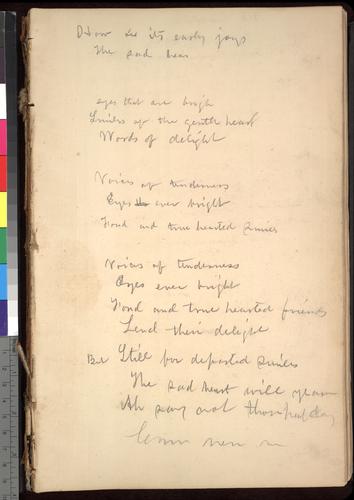 How its early joys
The sad
eyes that are bright
Smiles of the gentle heart
Words of delight
Voices of tenderness
Eyes ever bright
Fond and true hearted smiles
Voices of tenderness
Eyes ever bright
Fond and true hearted friends
Lend their delight
But Still for departed smiles
The sad heart will yearn
Ah say not